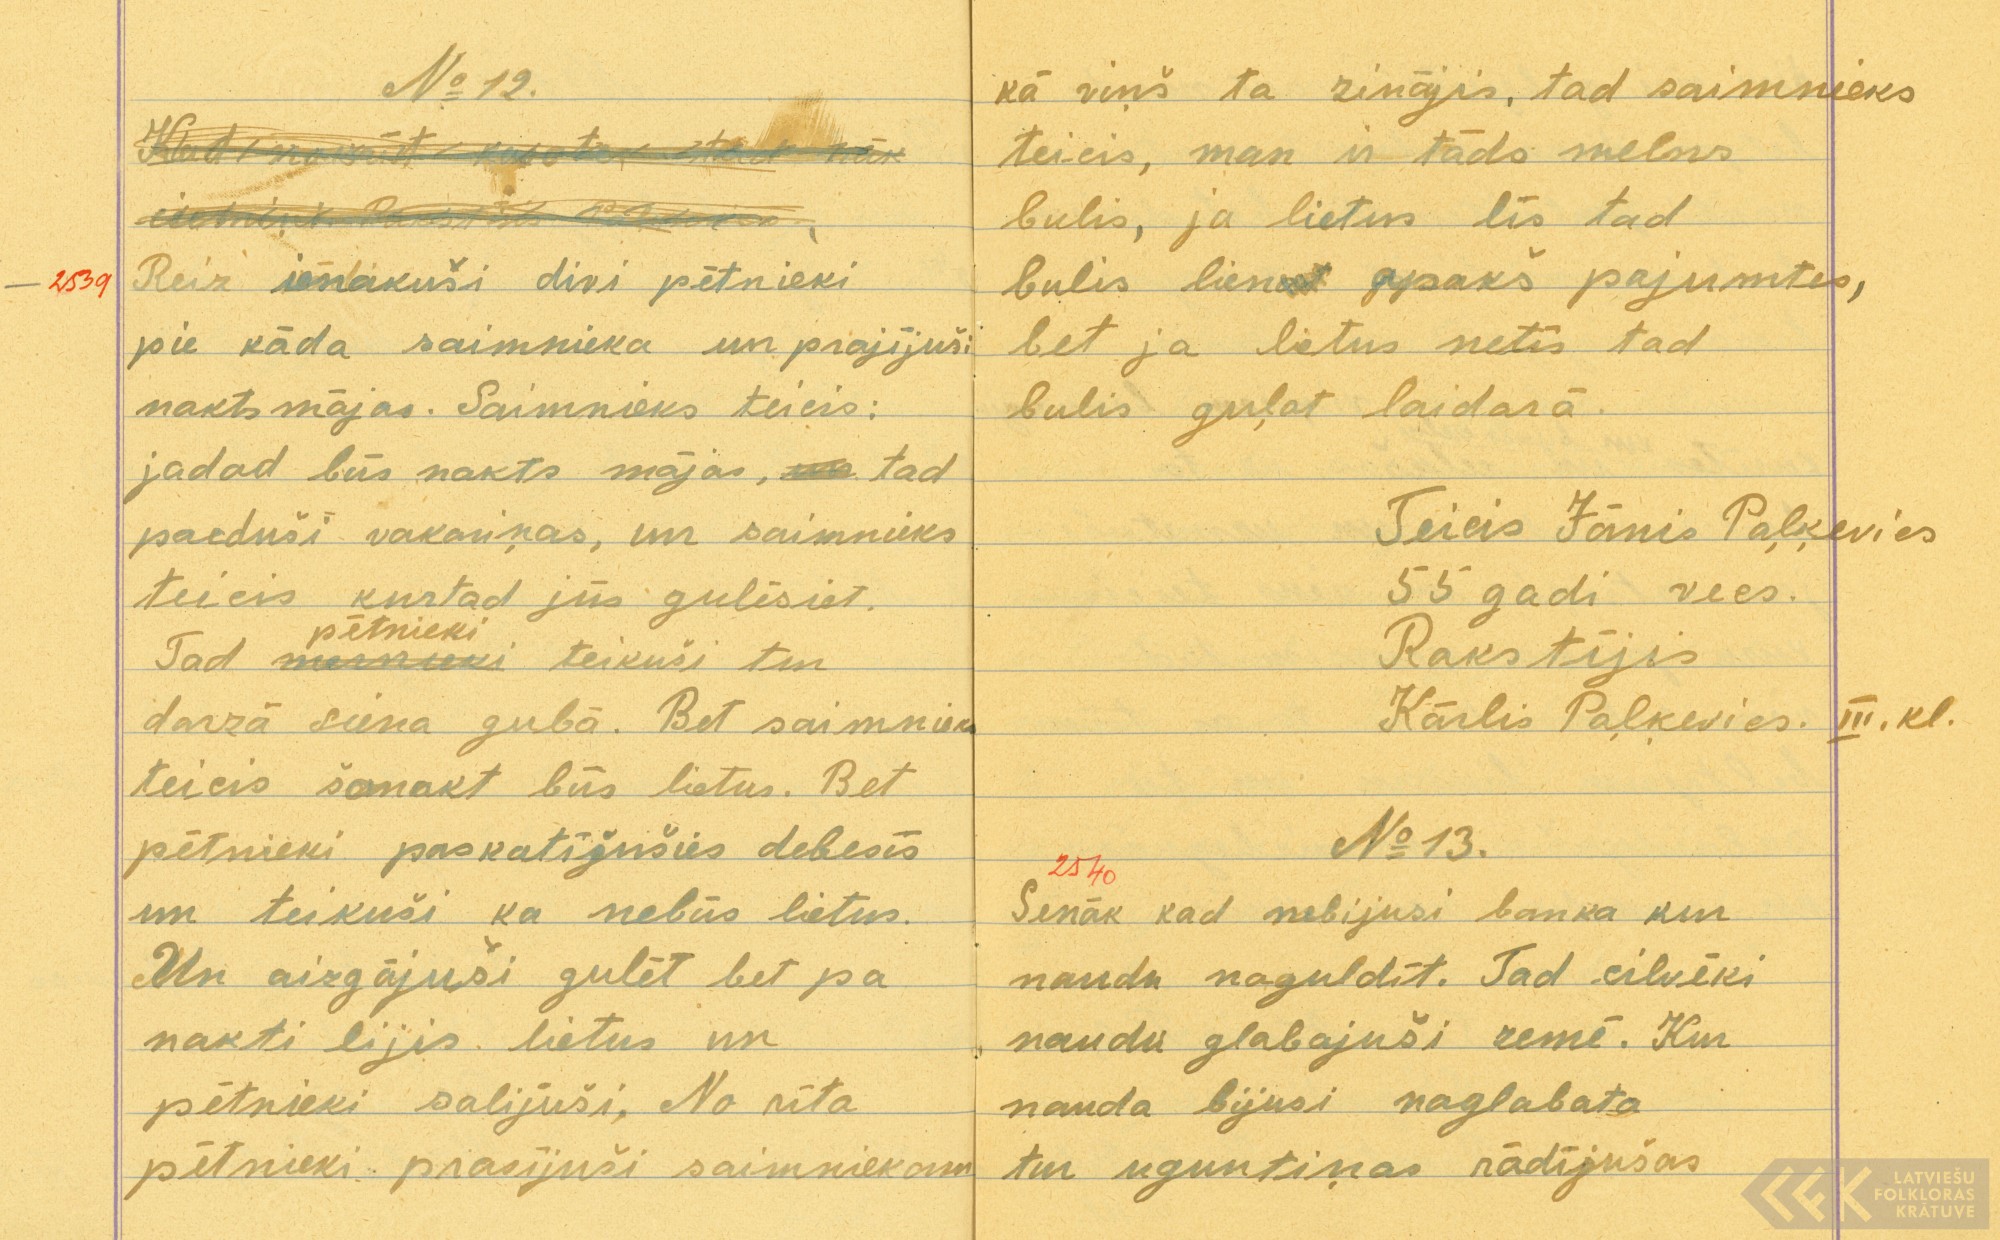 No 12.
2539 Reiz ienākuši divi pētnieki
pie kāda saimnieka un prajījuši
nakts mājas. Saimnieks teicis:
jadad būs nakts mājas, un tad
paeduši vakariņas, un saimnieks
teicis kurtad jūs gulēsiet.
pētnieki
Tad teikuši tur
darzā siena gubā. Bet saimnieks
teicis šonakt būs lietus. Bet
pētnieki paskatījušies debesīs
un teikuši ka nebūs lietus.
Un aizgājuši gulēt bet pa
nakti lijis lietus un
pētnieki salijuši, No rīta
pētnieki prasījuši saimniekam
kā viņš ta zinājis, tad saimnieks
teicis, man ir tāds melns
bulis, ja lietus līs tad
bulis lien apakš pajumtes,
bet ja lietus netīs tad
bulis guļot laidarā.
Teicis Jānis Paļķevics
55 gadi vecs.
Rakstījis
Kārlis Paļķevics. III. kl.
No 13.
2540
Senāk kad nebijusi banka kur
naudu noguldīt. Tad cilvēki
naudu glabajuši zemē. Kur
nauda bijusi noglabata
tur uguntiņas rādījušas
LATVIEŠU
FOLKLORAS
KRĀTUVE